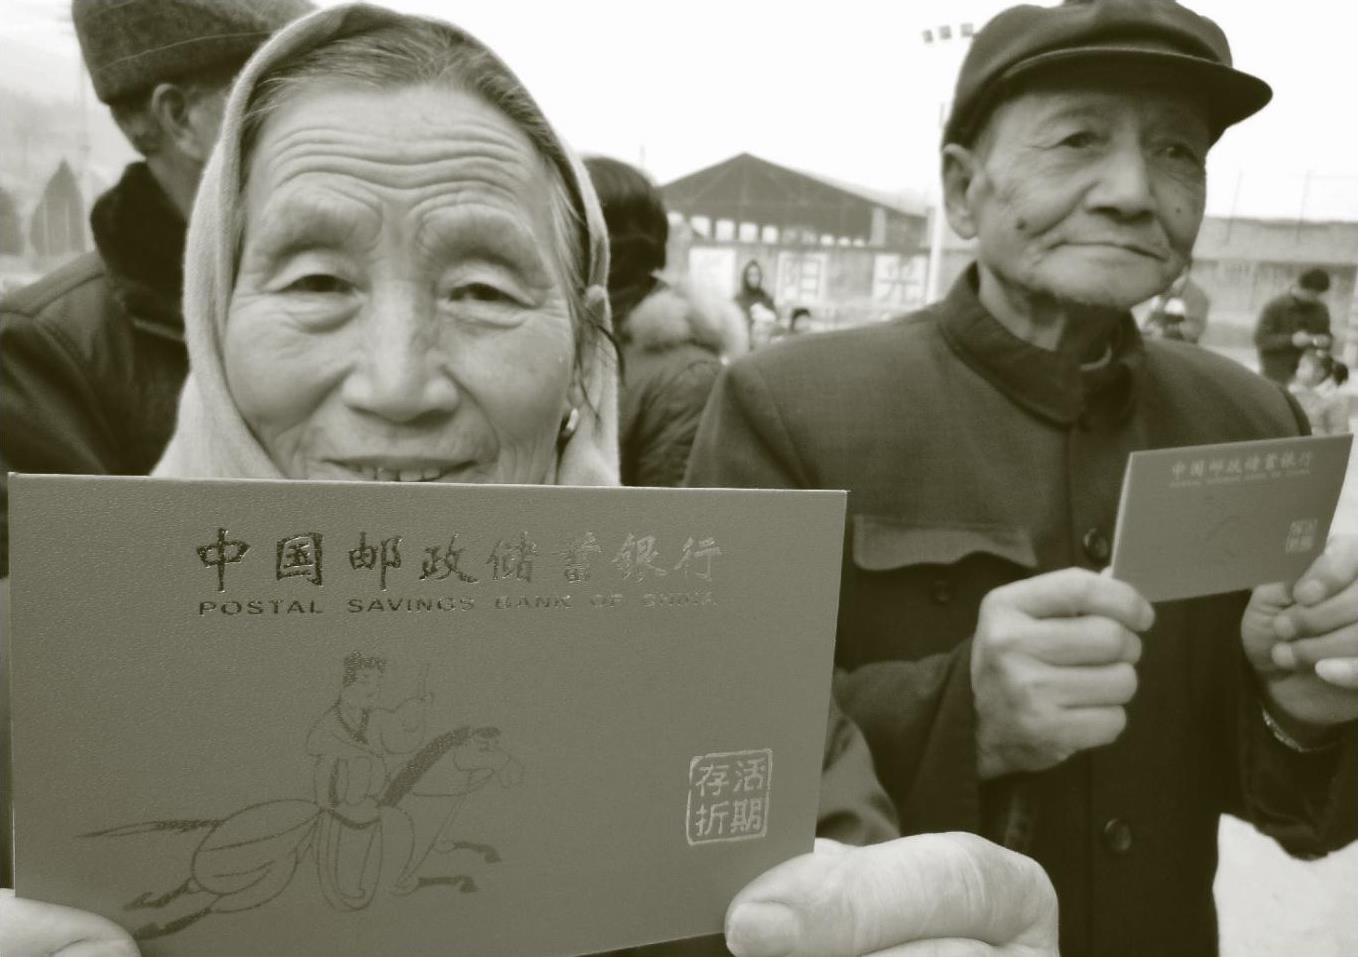 中国邮政储蓄银行
POSTAL SAVINGS BANK OF CHINA
活期
存折
中国邮政储蓄银行
阳光